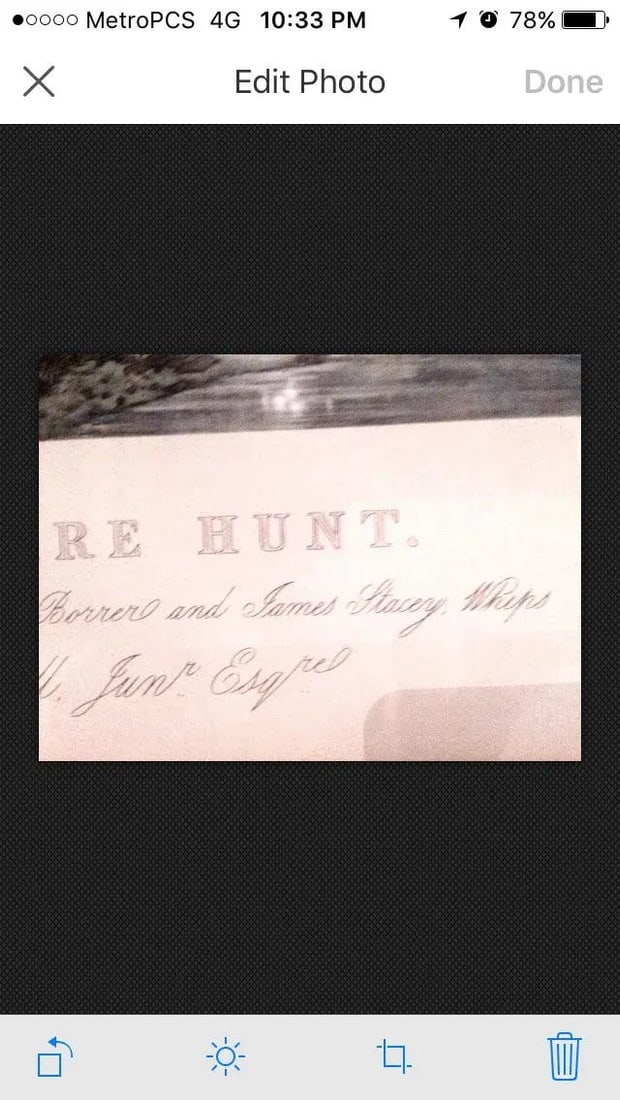 MetroPCS 4G 10:33 PM 78%
Edit Photo Done
RE HUNT.
Borrer and James Stacey, Whips
Junr Esqre